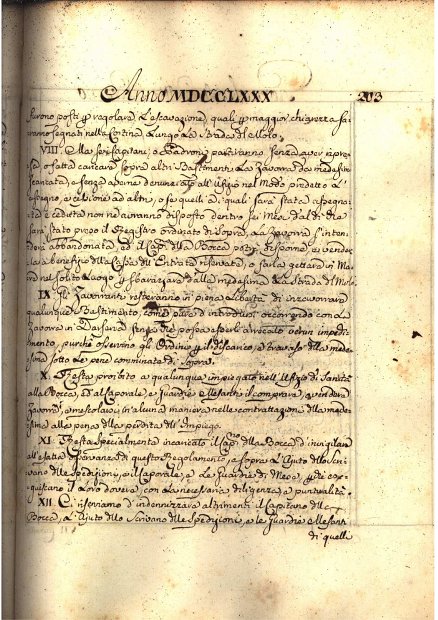 Anno MDCCLXXX 203
furono posti p regolare l'escavazione, quali p maggior chiarezza sa-
ranno segnati nella Cortina, lungo la Strada del Molo.
VIII. Ma se i Capitani, o Padroni partiranno senza aver ripre-
sa, o fatta caricare sopra altri Bastimenti la Zavorra da medesimi
scaricata, o senza averne denunciato all'Ufizio nel modo predetto l'
assegno, o cessione ad altri, o se quelli ai quali sarà stata assegna-
ta, e ceduta non ne avranno disposto dentro sei Mesi dal dì che
sarà stato preso il Registro ordinato di sopra, la Zavorra s'inten-
derà abbandonata, ed il Capi. della Bocca potrà disporne, e vender-
la a benefizio della Cassa dell'Entrata riservata, o farla gettare in Ma-
re nel solito luogo, p sbarazzare dalla medesima la Strada del Molo.
IX. Gli Zavorranti resteranno in piena libertà di inzavorrare
qualunque Bastimento, come pure d'introdur, occorrendo con la
Zavorra in Darsena senza che possa esserli arrecato verun impedi-
mento, purchè osservino gli Ordini p il discarico, e travaso della mede-
sima sotto le pene comminate di sopra.
X. Resta proibito a qualunque impiegato nell'Ufizio di Sanità
alla Bocca, ed al Caporale, e Guardie alle santi il comprare, o vendere
Zavorra, o mescolarsi in alcuna maniera nelle contrattazioni della mede-
sima alla pena della perdita dell'Impiego.
XI. Resta specialmente incaricato il Capno. della Bocca d'invigilare
all'esatta osservanza di questo Regolamento, e sopra l'Ajuto dello Scri-
vano delle Spedizioni, il Caporale, e le Guardie di Mese, p che ese-
guiscano il loro dovere, con la necessaria diligenza, e puntualità.
XII. Ci riserviamo d'indennizzare altrimenti il Capitano della
Bocca, l'Ajuto dello Scrivano delle Spedizioni, e le Guardie alle santi
di quelli